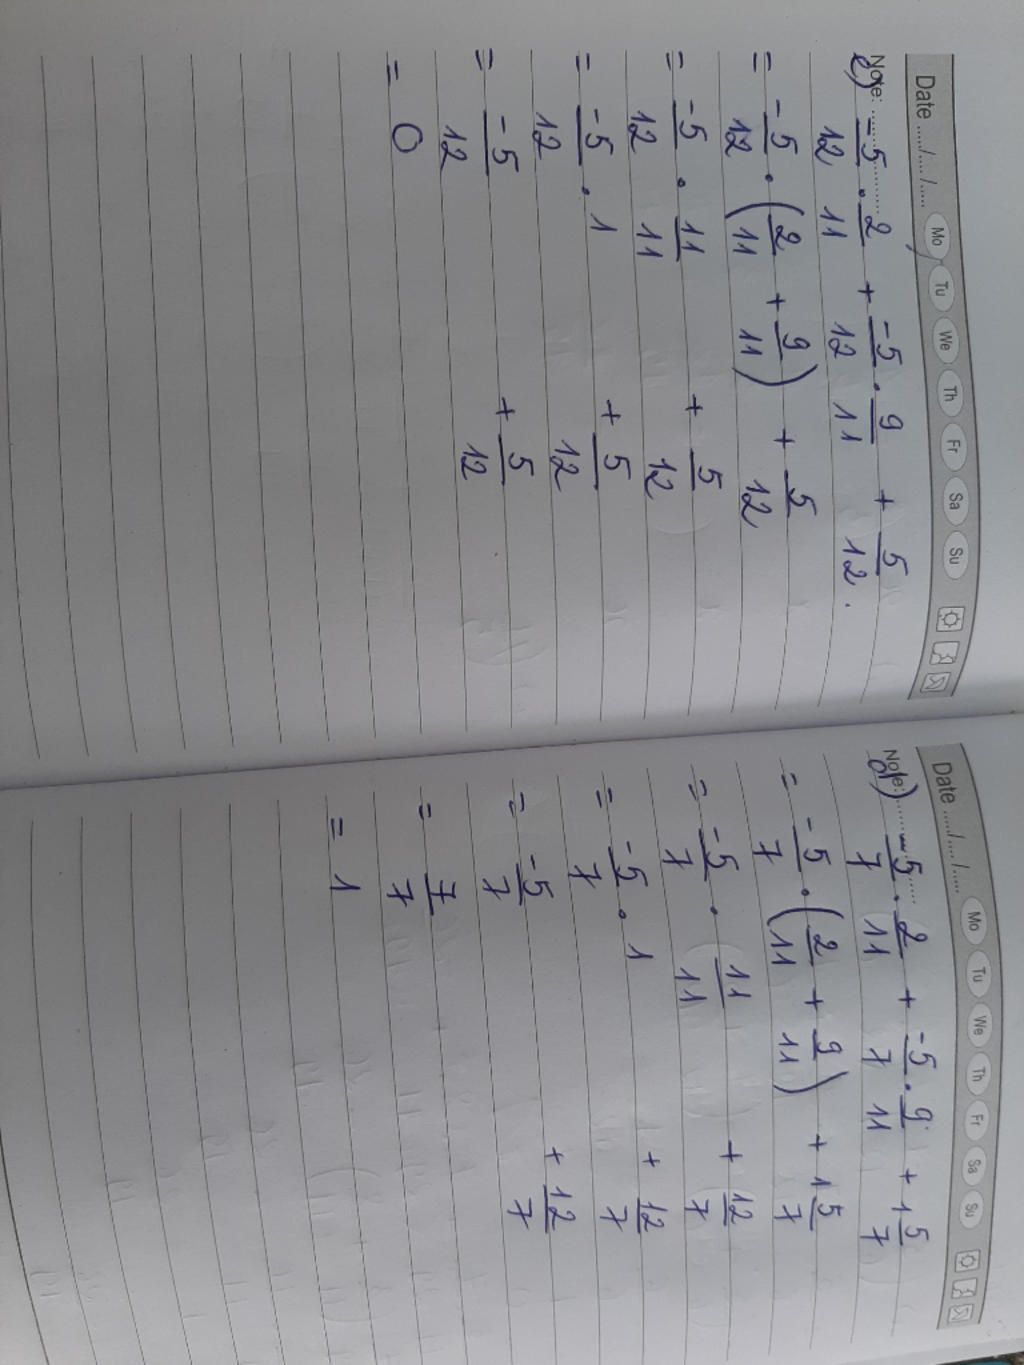 Date ...../...../..... Mo Tu We Th Fr Sa Su
Note:
c) -5/12 . 2/11 + -5/12 . 9/11 + 5/12 .
= -5/12 . (2/11 + 9/11) + 5/12
= -5/12 . 11/11 + 5/12
= -5/12 . 1 + 5/12
= -5/12 + 5/12
= 0
Date ...../...../..... Mo Tu We Th Fr Sa Su
Note:
d) -5/7 . 2/11 + -5/7 . 9/11 + 1 5/7
= -5/7 . (2/11 + 9/11) + 1 5/7
= -5/7 . 11/11 + 12/7
= -5/7 . 1 + 12/7
= -5/7 + 12/7
= 7/7
= 1